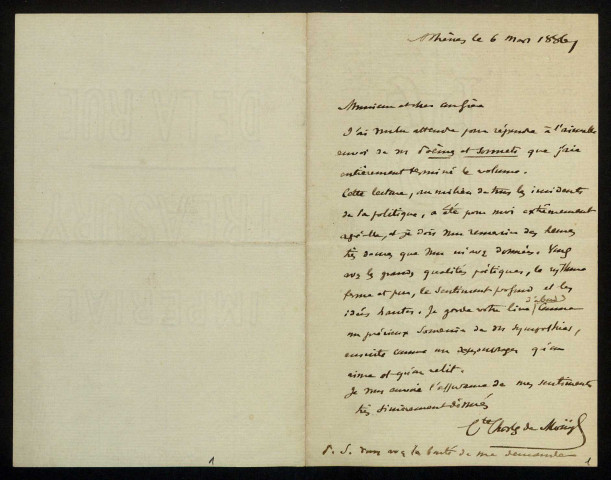 Athènes le 6 mars 1886
Monsieur et cher confrère
J'ai voulu attendre pour répondre à l'aimable
envoi de vos Poèmes et Sonnets que j'aie
entièrement terminé le volume.
Cette lecture, au milieu de tous les incidents
de la politique, a été pour moi extrêmement
agréable, et je dois vous remercier des heures
très douces que vous m'avez données. Vous
avez les grandes qualités poétiques, le rythme
ferme et pur, le sentiment profond et les
idées hautes. Je garde votre livre d'abord comme
un précieux souvenir de vos sympathies,
ensuite comme un des ouvrages qu'on
aime et qu'on relit.
Je vous envoie l'assurance de mes sentiments
très sincèrement dévoués
Cte Charles de Moüy
P. S. vous avez la bonté de me demander
1
1
DE LA RUE